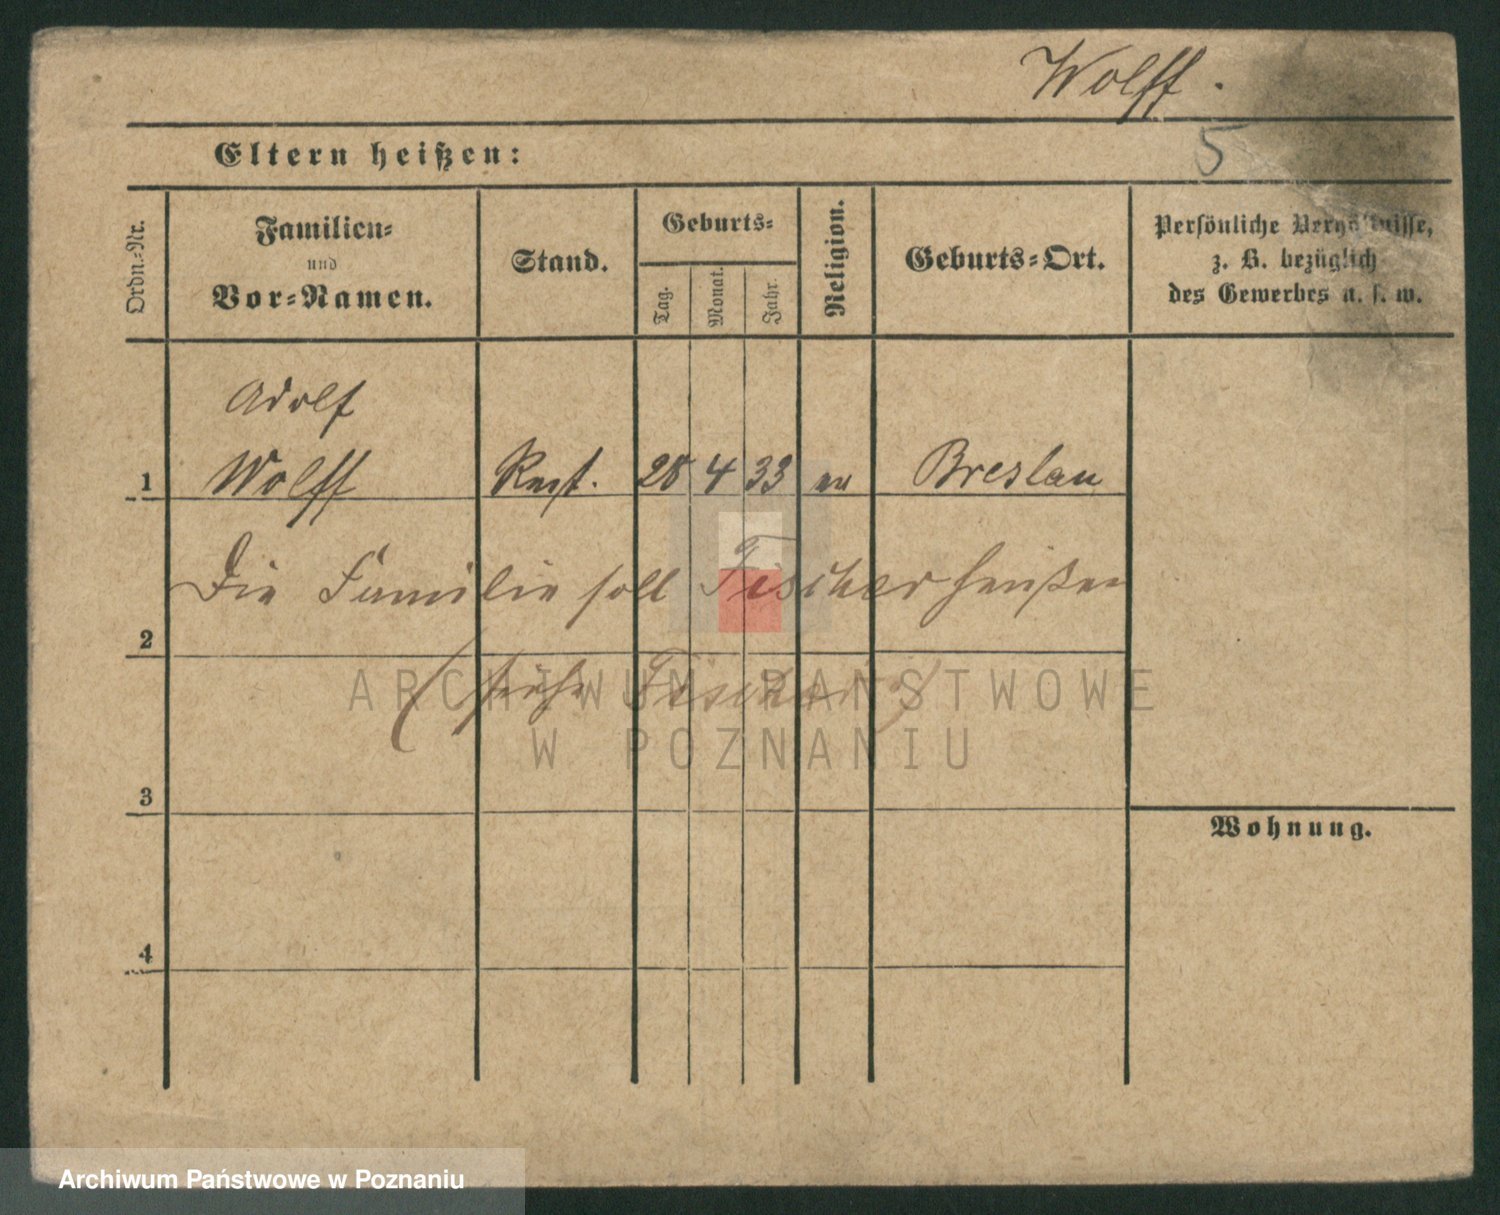 Wolff.
Eltern heißen:
5
Ordn.-Nr.
Familien-
und
Vor-Namen.
Stand.
Geburts-
Tag.
Monat.
Jahr.
Religion.
Geburts-Ort.
Persönliche Verhältnisse,
z. B. bezüglich
des Gewerbes u. s. w.
Adolf
1 Wolff 28 4 33 ev Breslau
Die Familie soll Fischer heißen
2
(siehe Fischer)
3
Wohnung.
4
ARCHIWUM PAŃSTWOWE
W POZNANIU
Archiwum Państwowe w Poznaniu